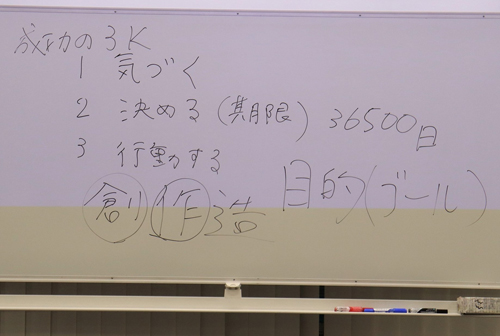 成功の3K
1 気づく
2 決める(期限) 36500日
3 行動する
創作造 目的(ゴール)